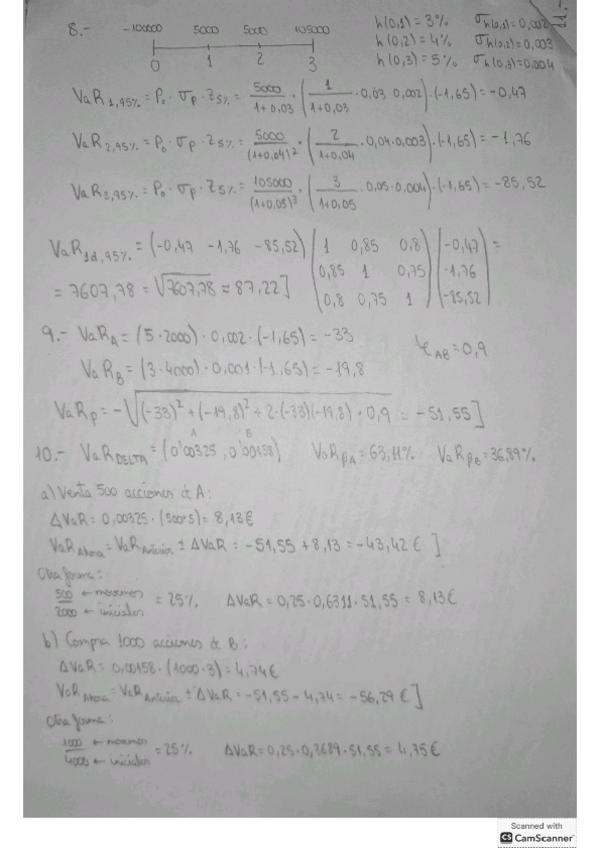 8.- -100000 5000 5000 105000
0 1 2 3
h(0,1) = 3% σh(0,1)=0,002
h(0,2) = 4% σh(0,2)=0,003
h(0,3) = 5% σh(0,3)=0,004
VaR1,95% = P0 · σp · Z5% = 5000/(1+0,03) · (1/(1+0,03) · 0,03 · 0,002) · (-1,65) = -0,47
VaR2,95% = P0 · σp · Z5% = 5000/(1+0,04)² · (2/(1+0,04) · 0,04 · 0,003) · (-1,65) = -1,76
VaR3,95% = P0 · σp · Z5% = 105000/(1+0,05)³ · (3/(1+0,05) · 0,05 · 0,004) · (-1,65) = -85,52
VaR1d,95% = (-0,47 -1,76 -85,52) (1 0,85 0,8) (-0,47) =
(0,85 1 0,75) (-1,76)
(0,8 0,75 1) (-85,52)
= 7607,78 = √7607,78 = 87,22]
9.- VaRA = (5·2000) · 0,002 · (-1,65) = -33 φAB = 0,9
VaRB = (3·4000) · 0,001 · (-1,65) = -19,8
VaRP = -√((-33)² + (-19,8)² + 2·(-33)(-19,8) · 0,9) = -51,55]
A B
10.- VaRDELTA = (0'00325, 0'00158) VaRβA = 63,11% VaRβB = 36,89%
a) Venta 500 acciones de A:
ΔVaR = 0,00325 · (500·5) = 8,13€
VaRAhora = VaRAnterior ± ΔVaR = -51,55 + 8,13 = -43,42€]
Otra forma:
500 ← movemos / 2000 ← iniciales = 25% ΔVaR = 0,25 · 0,6311 · 51,55 = 8,13€
b) Compra 1000 acciones de B:
ΔVaR = 0,00158 · (1000·3) = 4,74€
VaRAhora = VaRAnterior ± ΔVaR = -51,55 - 4,74 = -56,29€]
Otra forma:
1000 ← movemos / 4000 ← iniciales = 25% ΔVaR = 0,25 · 0,3689 · 51,55 = 4,75€
Scanned with
CS CamScanner